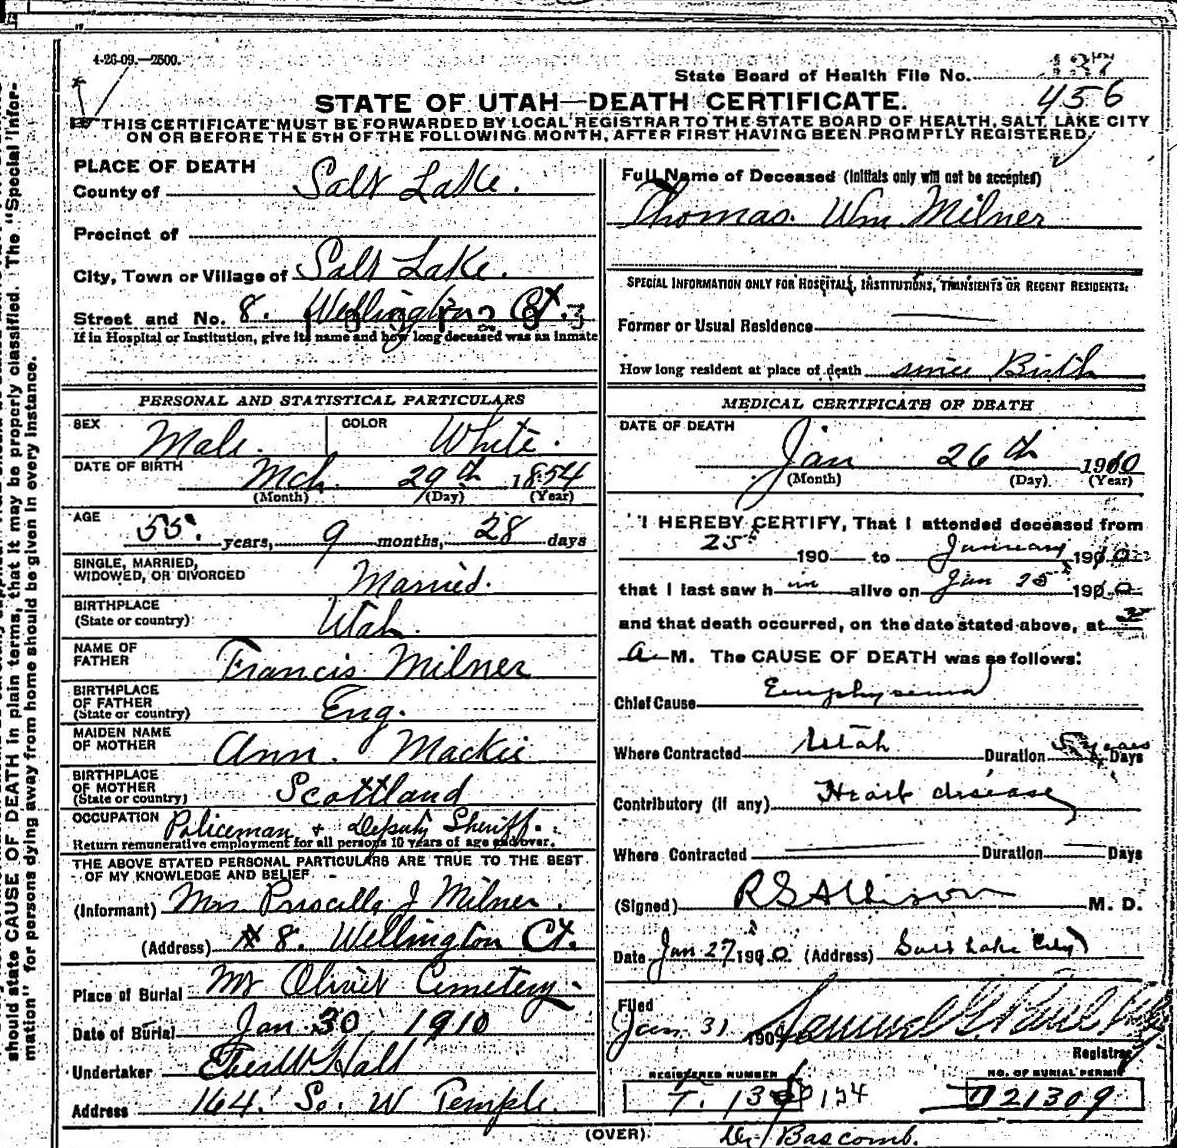 4-26-09.—2500.
State Board of Health File No. 137
456
STATE OF UTAH—DEATH CERTIFICATE.
THIS CERTIFICATE MUST BE FORWARDED BY LOCAL REGISTRAR TO THE STATE BOARD OF HEALTH, SALT LAKE CITY
ON OR BEFORE THE 5TH OF THE FOLLOWING MONTH, AFTER FIRST HAVING BEEN PROMPTLY REGISTERED.
should state CAUSE OF DEATH in plain terms, that it may be properly classified. The "Special Infor-
mation" for persons dying away from home should be given in every instance.
PLACE OF DEATH
County of Salt Lake.
Precinct of
City, Town or Village of Salt Lake.
Street and No. 8. Wellington Ct.
If in Hospital or Institution, give its name and how long deceased was an inmate
PERSONAL AND STATISTICAL PARTICULARS
SEX Male. COLOR White.
DATE OF BIRTH Mch. 29th 1854
(Month) (Day) (Year)
AGE 55. years, 9 months, 28 days
SINGLE, MARRIED,
WIDOWED, OR DIVORCED Married.
BIRTHPLACE
(State or country) Utah.
NAME OF
FATHER Francis Milner
BIRTHPLACE
OF FATHER
(State or country) Eng.
MAIDEN NAME
OF MOTHER Ann. Mackie
BIRTHPLACE
OF MOTHER
(State or country) Scottland
OCCUPATION Policeman + Deputy Sheriff.
Return remunerative employment for all persons 10 years of age and over.
THE ABOVE STATED PERSONAL PARTICULARS ARE TRUE TO THE BEST
OF MY KNOWLEDGE AND BELIEF
(Informant) Mrs Priscilla J Milner.
(Address) # 8. Wellington Ct.
Place of Burial Mt Olivet Cemetery.
Date of Burial Jan 30, 1910
Undertaker Eber W Hall
Address 164. So. W Temple.
Full Name of Deceased (Initials only will not be accepted)
Thomas. Wm. Milner
SPECIAL INFORMATION ONLY FOR HOSPITALS, INSTITUTIONS, TRANSIENTS OR RECENT RESIDENTS:
Former or Usual Residence
How long resident at place of death since Birth
MEDICAL CERTIFICATE OF DEATH
DATE OF DEATH
Jan 26th 1910
(Month) (Day) (Year)
I HEREBY CERTIFY, That I attended deceased from
25 190 to January 1910
that I last saw him alive on Jan 25 1910
and that death occurred, on the date stated above, at
a M. The CAUSE OF DEATH was as follows:
Chief Cause Emphysema
Where Contracted Utah Duration 5 years Days
Contributory (if any) Heart disease
Where Contracted Duration Days
(Signed) RS Allison M. D.
Date Jan 27, 1910. (Address) Salt Lake City
Filed
Jan. 31 190 Samuel G. Paul
Registrar
REGISTERED NUMBER NO. OF BURIAL PERMIT
T. 134 D 21309
(OVER) Bascomb.